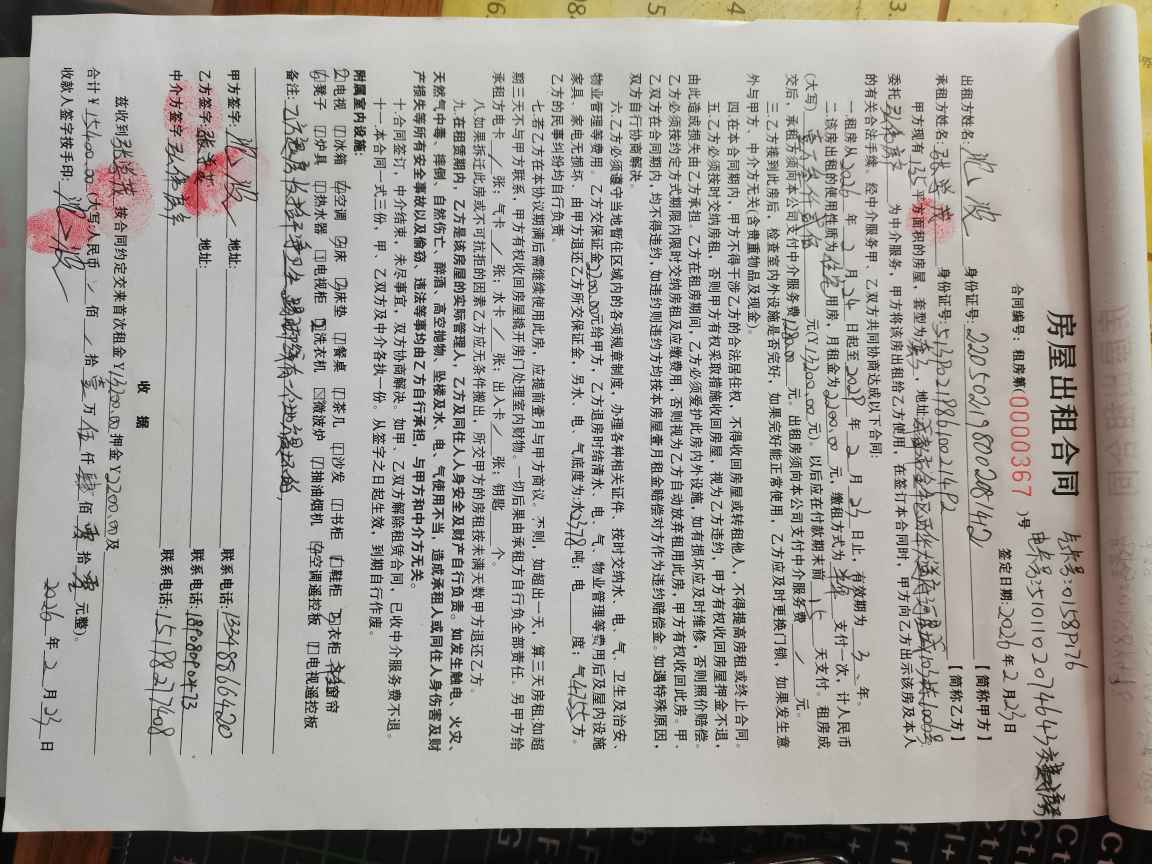 房屋出租合同
气号:0158P176
电号:5101102074643
合同编号：租房第(0000367)号 签定日期:2026年2月23日
出租方姓名: 身份证号:22050219800208142 【简称甲方】
承租方姓名: 身份证号:51302198610021492 【简称乙方】
甲方现有135平方面积的房屋，套型为 地址
委托 为中介服务，甲方将该房出租给乙方使用，在签订本合同时，甲方向乙方出示该房及本人
的有关合法手续。经中介服务甲、乙双方共同协商达成以下合同:
一.租房从2026年2月24日起至2029年2月23日止，有效期为3年。
二.该房出租的使用性质为住宅用房，月租金为2200.00元，缴租方式为半年支付一次，计人民币
(大写)壹万叁仟贰佰元(Y13200.00元)。以后应在付款期末前15天支付。租房成
交后，承租方须向本公司支付中介服务费 元。出租房须向本公司支付中介服务费/元。
三.乙方接到此房后，检查室内外设施是否完好，如果完好能正常使用，乙方应及时更换门锁，如果发生意
外与甲方、中介方无关(含贵重物品及现金)。
四.在本合同期内，甲方不得干涉乙方的合法居住权，不得收回房屋或转租他人，不得提高房租或终止合同。
五.乙方必须按时交纳房租，否则甲方有权采取措施收回房屋，视为乙方违约，甲方有权收回房屋押金不退，
由此造成损失由乙方承担。乙方在租房期间，乙方必须爱护此房内外设施，如有损坏应及时维修，否则照价赔偿。
乙方必须按约定方式期限内限时交纳房租及应缴费用，否则视为乙方自动放弃租用此房，甲方有权收回此房。甲、
乙双方在合同期内，均不得违约，如违约则违约方均按本房屋壹月租金赔偿对方作为违约赔偿金。如遇特殊原因，
双方自行协商解决。
六.乙方必须遵守当地暂住区域内的各项规章制度，办理各种相关证件、按时交纳水、电、气、卫生及治安、
物业管理等费用。乙方交保证金2200.00元给甲方，乙方退房时结清水、电、气、物业管理等费用后及屋内设施
家具、家电无损坏、由甲方退还乙方所交保证金，另水、电、气底度为:水2378吨；电 度；气4755方。
乙方的民事纠纷均自行负责。
七.若乙方在本协议期满后需继续使用此房，应提前壹月与甲方商议。不则，如超出一天，算三天房租;如超
期三天不与甲方联系，甲方有权收回房屋撬开房门处理室内财物。一切后果由承租方自行负全部责任。另甲方给
承租方电卡/张；气卡/张；水卡/张；出入卡/张；钥匙 个。
八.如果拆迁此房或不可抗拒的因素乙方应无条件搬出，所交甲方的房租按未满天数甲方退还乙方。
九.在租赁期内，乙方是该房屋的实际管理人，乙方及同住人人身安全及财产自行负责。如发生触电、火灾、
天然气中毒、摔倒、自然伤亡、醉酒、高空抛物、坠楼及水、电、气使用不当，造成承租人或同住人人身伤害及财
产损失等所有安全事故以及偷窃、违法等事均由乙方自行承担，与甲方和中介方无关。
十.合同签订，中介结束，未尽事宜，双方协商解决。如甲、乙双方解除租赁合同，已收中介服务费不退。
十一.本合同一式三份，甲、乙双方及中介各执一份。从签字之日起生效，到期自行作废。
附属室内设施:
电视 冰箱 空调 床 床垫 餐桌 茶几 沙发 书柜 鞋柜 衣柜 窗帘
凳子 炉具 热水器 电视柜 洗衣机 微波炉 抽油烟机 空调遥控板 电视遥控板
备注:
甲方签字: 地址: 联系电话:13548566420
乙方签字: 地址: 联系电话:18908090473
中介方签字: 联系电话:15198217608
收 据
兹收到 按合同约定交来首次租金Y13200.00押金Y2200.00及
合计Y15400.00(大写人民币/佰/拾壹万伍仟肆佰零拾零元整)。
收款人签字按手印: 2026年2月23日